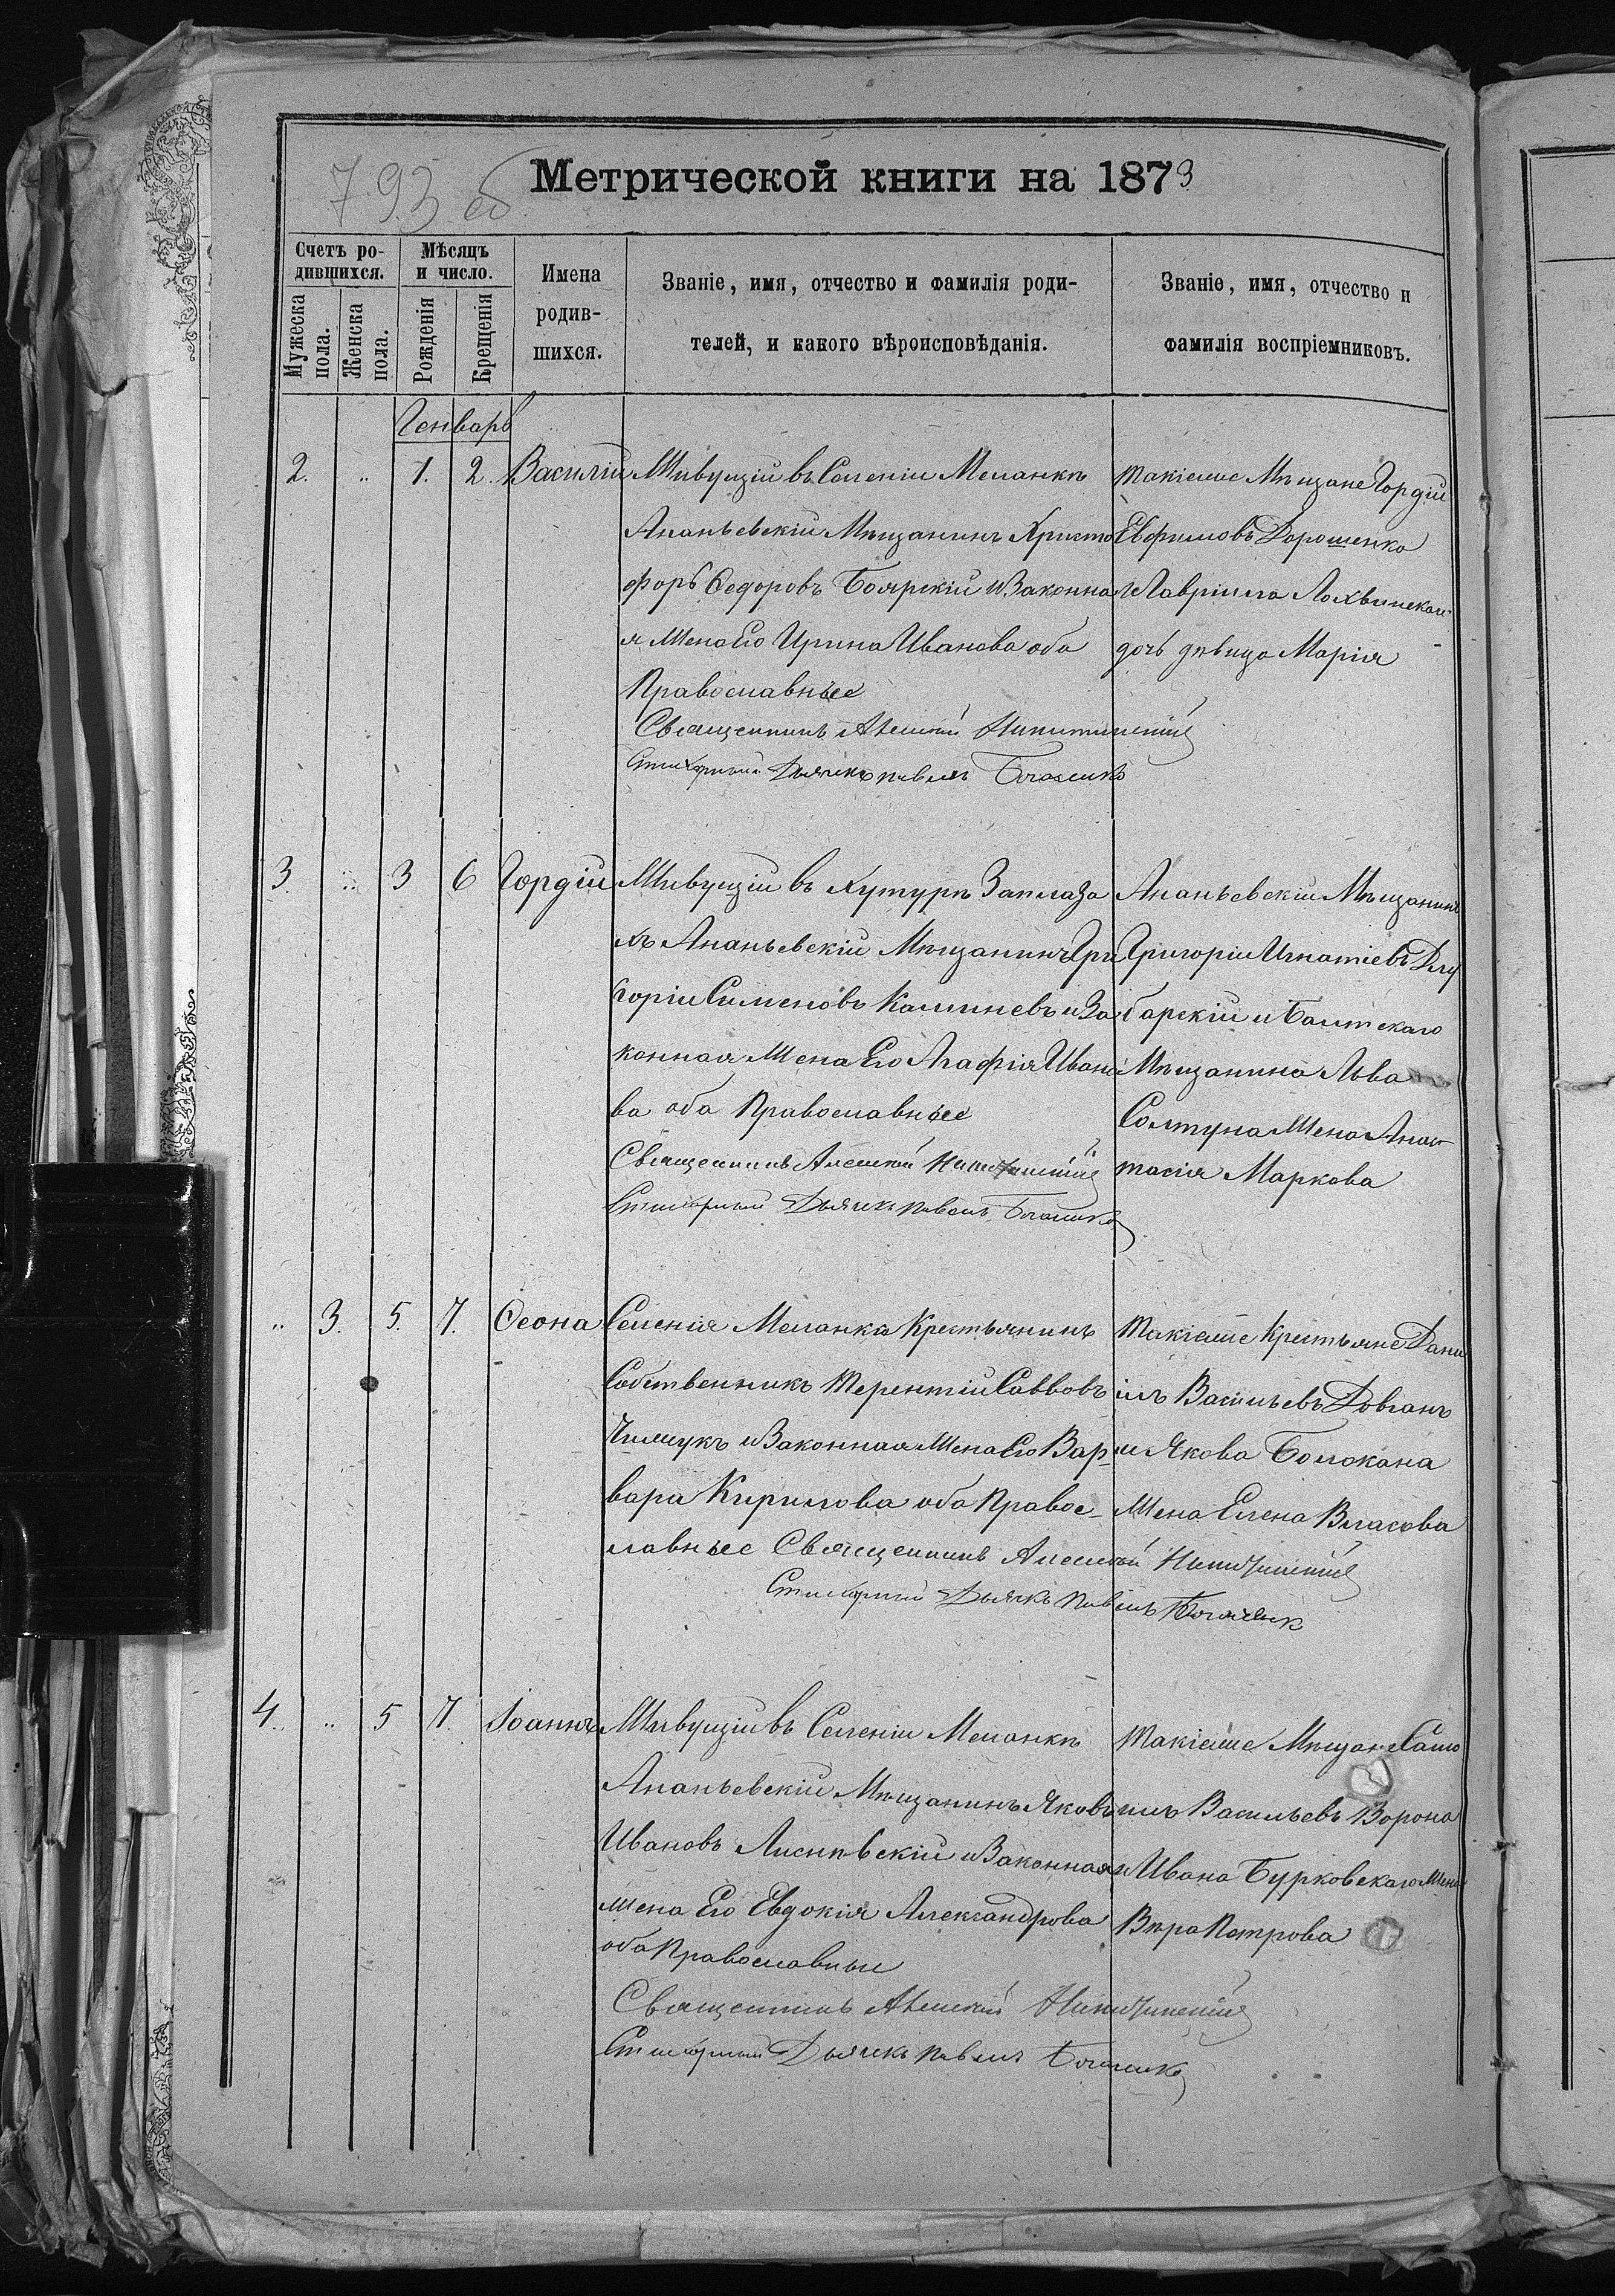 793 об
Метрической книги на 1873
Счетъ ро-
дившихся.
Мужеска
пола.
Женска
пола.
Мѣсяцъ
и число.
Рожденія
Крещенія
Имена
родив-
шихся.
Званіе, имя, отчество и фамилія роди-
телей, и какого вѣроисповѣданія.
Званіе, имя, отчество и
фамилія воспріемниковъ.
Генварь
2. „ 1. 2. Василій
Живущій въ Селеніи Меланкѣ
Ананьевскій Мѣщанинъ Христо
форъ Ѳедоровъ Боярскій и Законна
я Жена Его Ирина Иванова оба
Православные
Священникъ Алексій Никитинскій
Стихарный Дьячекъ Павелъ
Такіеже Мѣщане Гордій
Евфимовъ Дорошенко
и Гавріила Лохвинскаго
дочь дѣвица Марія
3. „ 3 6 Гордій
Живущій въ Хуторѣ Заплаза
хъ Ананьевскій Мѣщанинъ Гри
горій Сименовъ Калиневъ и За
конная Жена Его Агафія Ивано
ва оба Православные
Священникъ Алексій Никитинскій
Стихарный Дьячекъ Павелъ
Ананьевскій Мѣщанинъ
Григорій Игнатіевъ Длу
барскій и Балтскаго
Мѣщанина Льва
Солтуна Жена Анас
тасія Маркова
„ 3. 5. 7. Ѳеона
Селенія Меланка Крестьянинъ
Собственникъ Терентій Саввовъ
Чимукъ и Законная Жена Его Вар-
вара Кирилова оба Правос-
лавные Священникъ Алексій Никитинскій
Стихарный Дьячекъ Павелъ
Такіеже Крестьяне Дани
илъ Васильевъ Довганъ
и Якова Болокана
Жена Елена Власова
4. „ 5 7. Іоаннъ
Живущій въ Селеніи Меланкѣ
Ананьевскій Мѣщанинъ Яковъ
Ивановъ Лисиѣвскій и Законная
Жена Его Евдокія Александрова
оба Православные
Священникъ Алексій Никитинскій
Стихарный Дьячекъ Павелъ
Такіеже Мѣщане Само
илъ Васильевъ Ворона
и Ивана Бурковскаго Жена
Вѣра Петрова